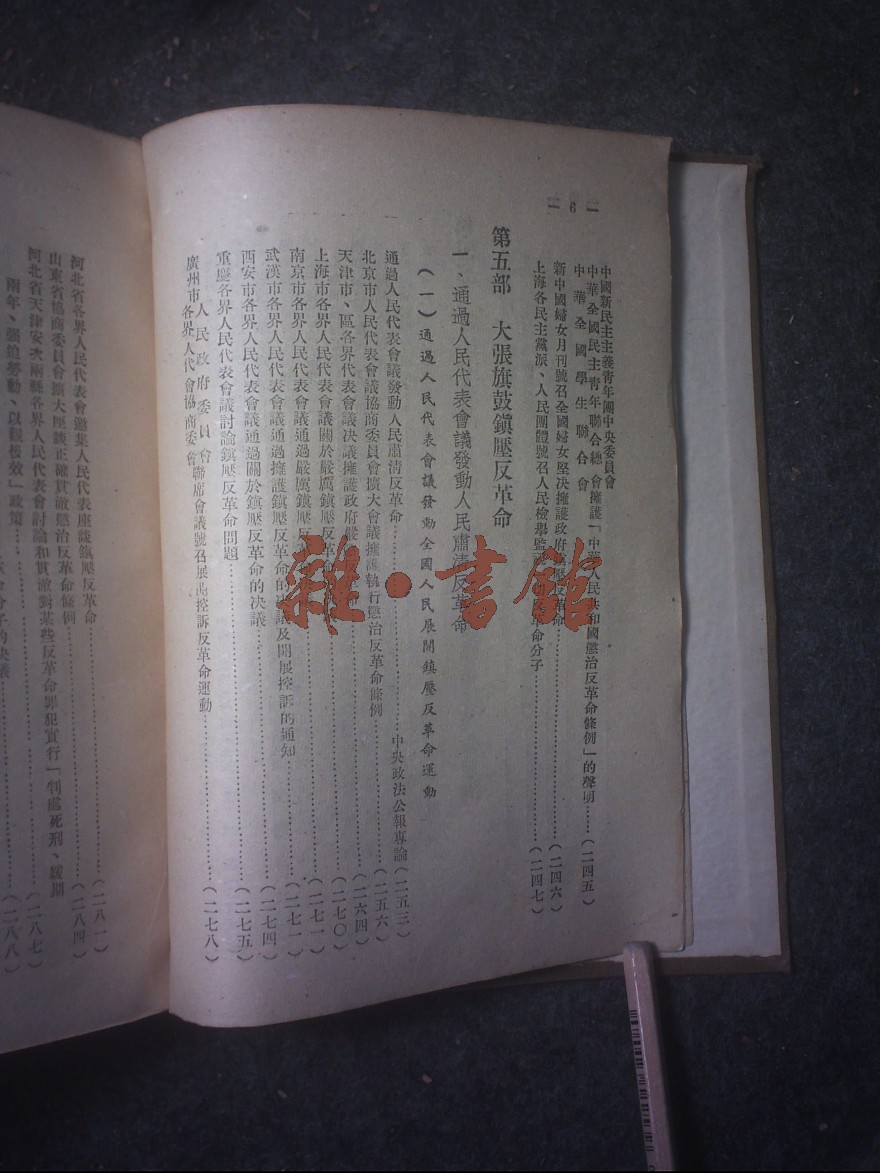 — 6 —
中國新民主主義青年團中央委員會
中華全國民主青年聯合總會擁護「中華人民共和國懲治反革命條例」的聲明……(二四五)
中華全國學生聯合會
新中國婦女月刊號召全國婦女堅決擁護政府鎮壓反革命……(二四六)
上海各民主黨派、人民團體號召人民檢舉監 革命分子……(二四七)
第五部 大張旗鼓鎮壓反革命
一、通過人民代表會議發動人民肅清反革命
(一)通過人民代表會議發動全國人民展開鎮壓反革命運動
通過人民代表會議發動人民肅清反革命……中央政法公報專論(二五三)
北京市人民代表會議協商委員會擴大會議擁護執行懲治反革命條例……(二五六)
天津市、區各界代表會議決議擁護政府嚴 革命……(二六四)
上海市各界人民代表會議關於嚴厲鎮壓反革命 ……(二七〇)
南京市各界人民代表會議通過嚴厲鎮壓反 ……(二七一)
武漢市各界人民代表會議通過擁護鎮壓反革命的 議及開展控訴的通知……(二七一)
西安市各界人民代表會議通過關於鎮壓反革命的決議……(二七四)
重慶各界人民代表會議討論鎮壓反革命問題……(二七五)
廣州市人民政府委員會各界人代會協商委會聯席會議號召展開控訴反革命運動……(二七八)
河北省各界人民代表會邀集人民代表座談鎮壓反革命……(二八一)
山東省協商委員會擴大座談正確貫澈懲治反革命條例……(二八四)
河北省天津安次兩縣各界人民代表會討論和貫澈對某些反革命罪犯實行「判處死刑、緩期
兩年、强迫勞動、以觀後效」政策……(二八七)
分子的決議……(二八八)
雜·書館